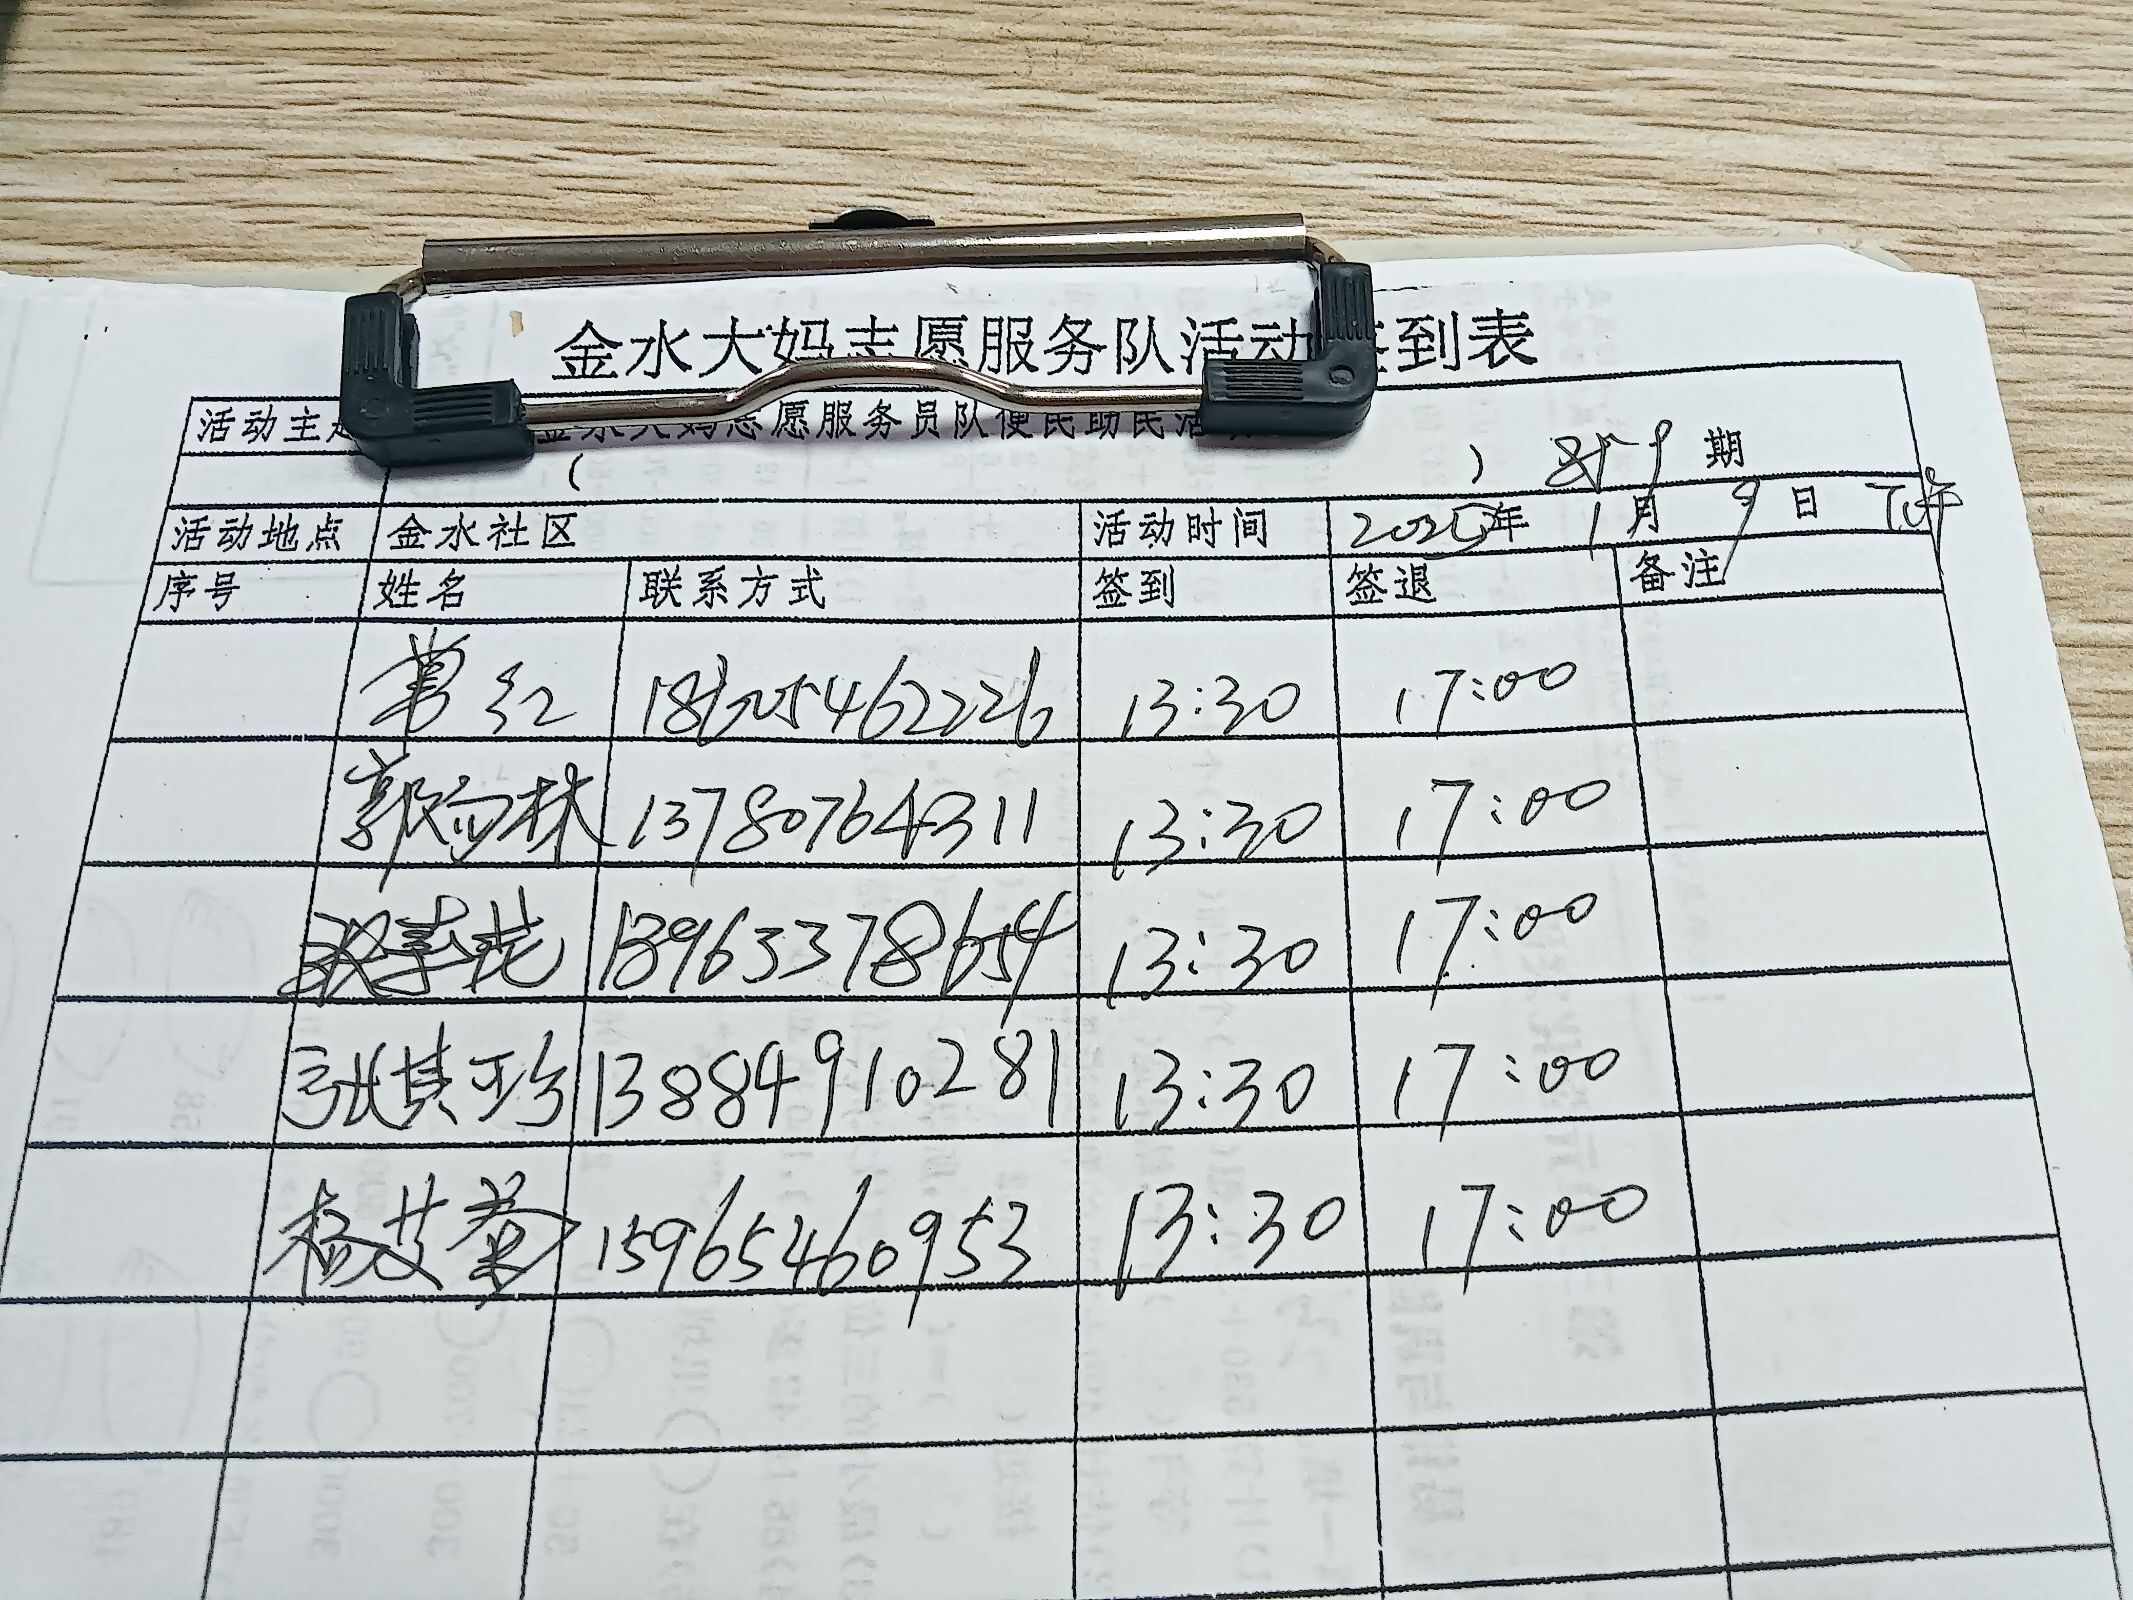 金水大妈志愿服务队活动签到表
活动主题 金水大妈志愿服务员队便民助民活动
( ) 859 期
活动地点 金水社区 活动时间 2025年 1月 9日 下午
序号 姓名 联系方式 签到 签退 备注
红 13:30 17:00
郭 林 13780764311 13:30 17:00
花 13963378654 13:30 17:00
张其珍 13884910281 13:30 17:00
杨艾菊 15965460953 13:30 17:00